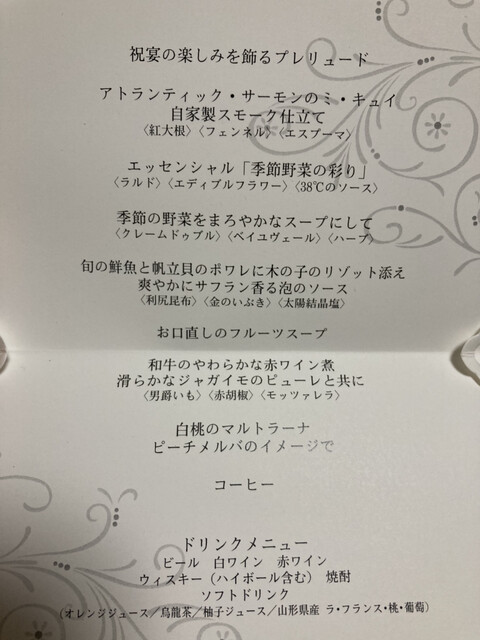 祝宴の楽しみを飾るプレリュード
アトランティック・サーモンのミ・キュイ
自家製スモーク仕立て
〈紅大根〉〈フェンネル〉〈エスプーマ〉
エッセンシャル「季節野菜の彩り」
〈ラルド〉〈エディブルフラワー〉〈38℃のソース〉
季節の野菜をまろやかなスープにして
〈クレームドゥブル〉〈ベイユヴェール〉〈ハーブ〉
旬の鮮魚と帆立貝のポワレに木の子のリゾット添え
爽やかにサフラン香る泡のソース
〈利尻昆布〉〈金のいぶき〉〈太陽結晶塩〉
お口直しのフルーツスープ
和牛のやわらかな赤ワイン煮
滑らかなジャガイモのピューレと共に
〈男爵いも〉〈赤胡椒〉〈モッツァレラ〉
白桃のマルトラーナ
ピーチメルバのイメージで
コーヒー
ドリンクメニュー
ビール　白ワイン　赤ワイン
ウィスキー（ハイボール含む）　焼酎
ソフトドリンク
（オレンジジュース／烏龍茶／柚子ジュース／山形県産 ラ・フランス・桃・葡萄）